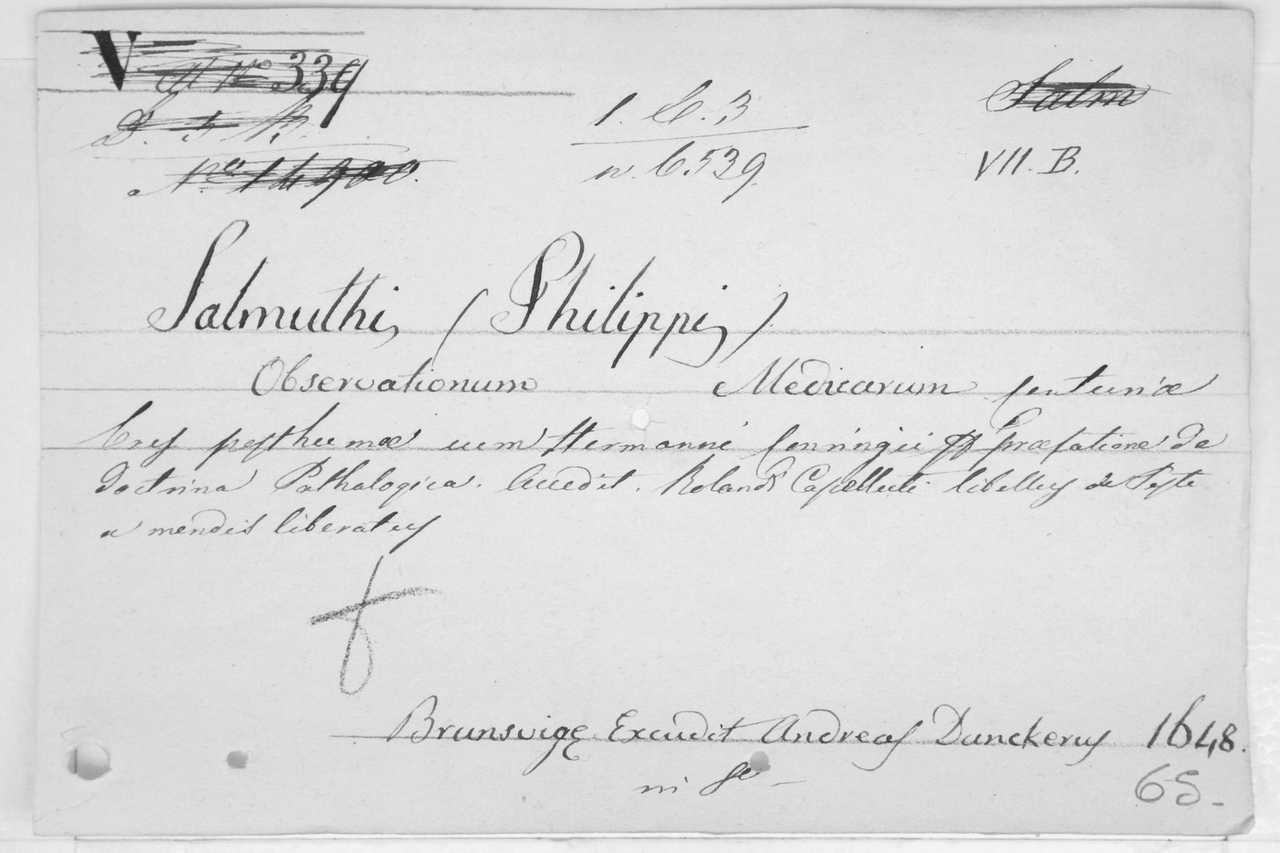 V
339
1. C. 3
Salm
D. 3 N.
n. 6.539.
VII. B.
N.o 14900.
Salmuthi, (Philippi,)
Observationum Medicarum Centuriæ
tres posthumæ cum Hermanni Conringii Præfatione de
doctrina Pathalogica. Accedit. Rolandi Capelluti libellus de Peste
a mendis liberatus
Brunsvigæ Excudit Andreas Dunckerus 1648.
in 4o -
6S -